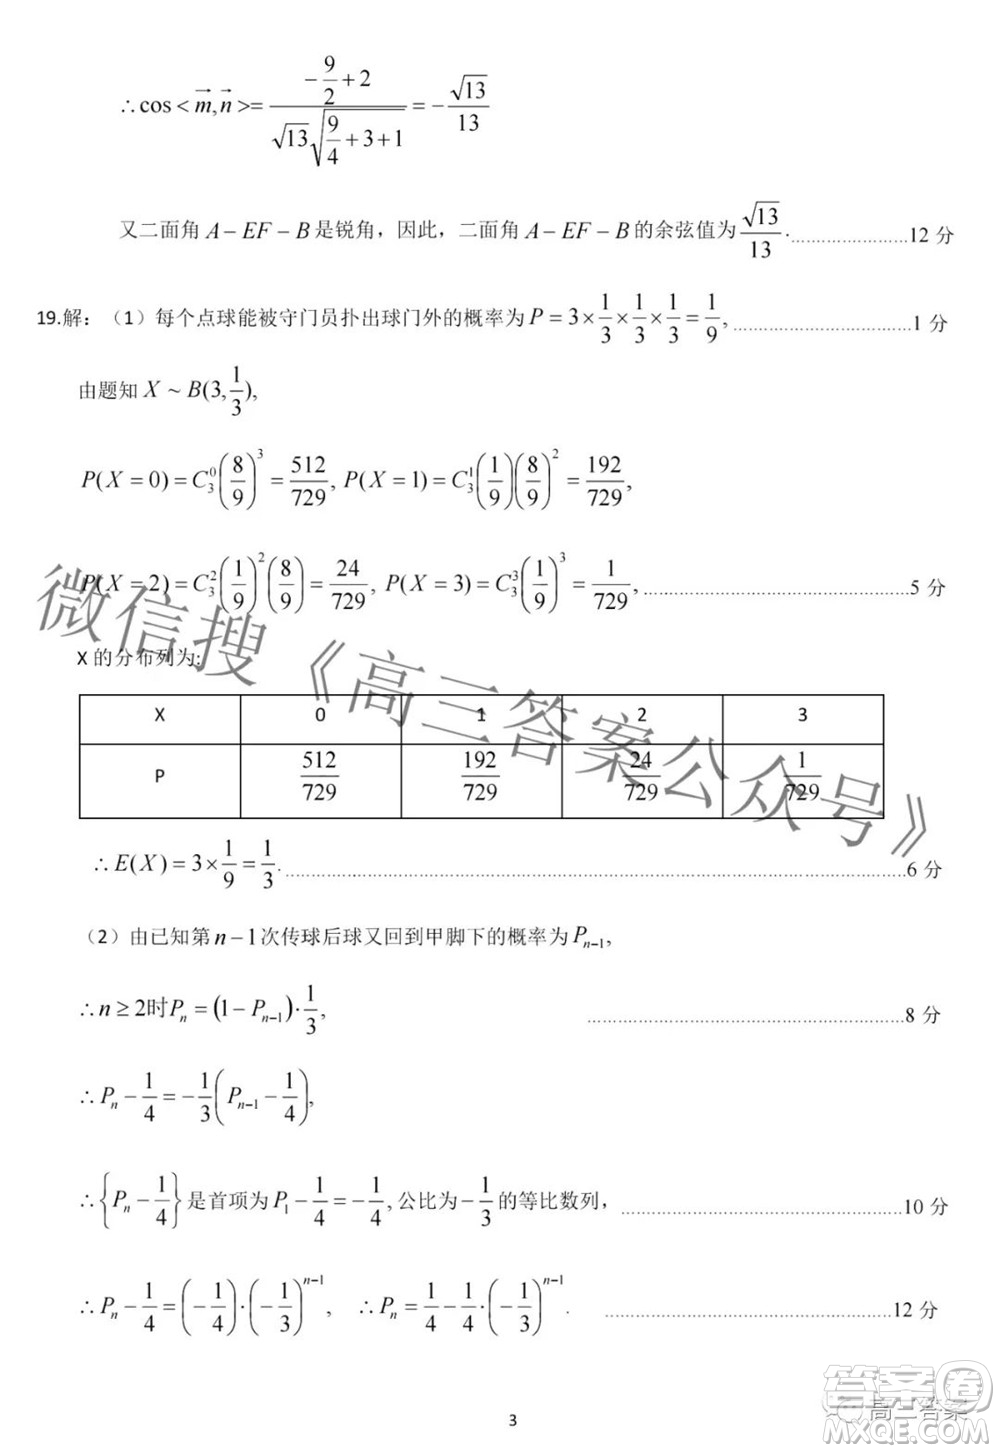 ∴cos<m⃗,n⃗>=(-9/2+2)/(√13√(9/4+3+1))=-√13/13
又二面角A-EF-B是锐角，因此，二面角A-EF-B的余弦值为√13/13.......................12 分
19.解：（1）每个点球能被守门员扑出球门外的概率为P=3×1/3×1/3×1/3=1/9,...................................1 分
由题知X~B(3,1/3),
P(X=0)=C₃⁰(8/9)³=512/729, P(X=1)=C₃¹(1/9)(8/9)²=192/729,
P(X=2)=C₃²(1/9)²(8/9)=24/729, P(X=3)=C₃³(1/9)³=1/729,.......................................5 分
X 的分布列为:
X 0 1 2 3
P 512/729 192/729 24/729 1/729
∴E(X)=3×1/9=1/3...........................................................................................6 分
（2）由已知第n-1次传球后球又回到甲脚下的概率为Pₙ₋₁,
∴n≥2时Pₙ=(1-Pₙ₋₁)·1/3, ..............................................8 分
∴Pₙ-1/4=-1/3(Pₙ₋₁-1/4),
∴{Pₙ-1/4}是首项为P₁-1/4=-1/4,公比为-1/3的等比数列，.........................................10 分
∴Pₙ-1/4=(-1/4)·(-1/3)ⁿ⁻¹, ∴Pₙ=1/4-1/4·(-1/3)ⁿ⁻¹. ..........................................12 分
微信搜《高三答案公众号》
答案卷
高三答案
MXQE.COM
3